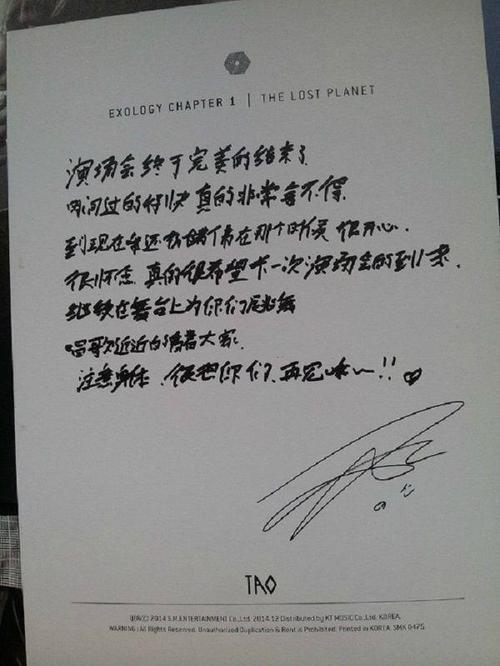 EXOLOGY CHAPTER 1 | THE LOST PLANET
演场会终于完美的结束了
时间过的很快真的非常舍不得.
到现在我还停留在那个时候 很开心.
很怀念 真的很希望下一次演场会的到来.
继续在舞台上为你们跳舞
唱歌近近的看着大家.
注意身体. 很想你们. 再见咪~!!♡
TAO
℗&© 2014 S.M.ENTERTAINMENT Co.,Ltd. 2014.12 Distributed by KT MUSIC Co.,Ltd. KOREA.
WARNING : All Rights Reserved. Unauthorized Duplication & Rent is Prohibited. Printed in KOREA. SMK 0475.